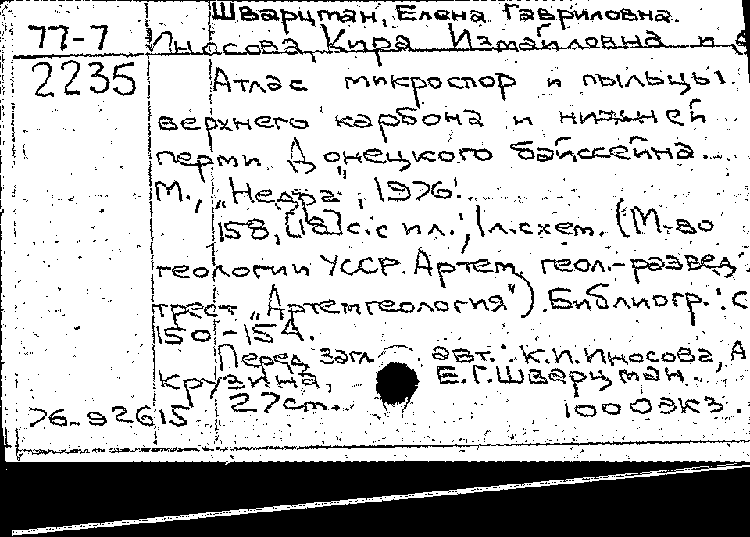 Шварцман, Елена Гавриловна.
77-7 Иносова, Кира Измайловна и
2235 Атлас микроспор и пыльцы
верхнего карбона и нижней
перми Донецкого бассейна.
М., "Недра", 1976.
158, [18] с. с ил.; 1 л. схем. (М-во
геологии УССР. Артем. геол.-развед.
трест "Артемгеология"). Библиогр.: с
150-154.
Перед загл. авт.: К.И. Иносова, А
Крузина, Е.Г. Шварцман.
27 см. 1000 экз.
76-92615